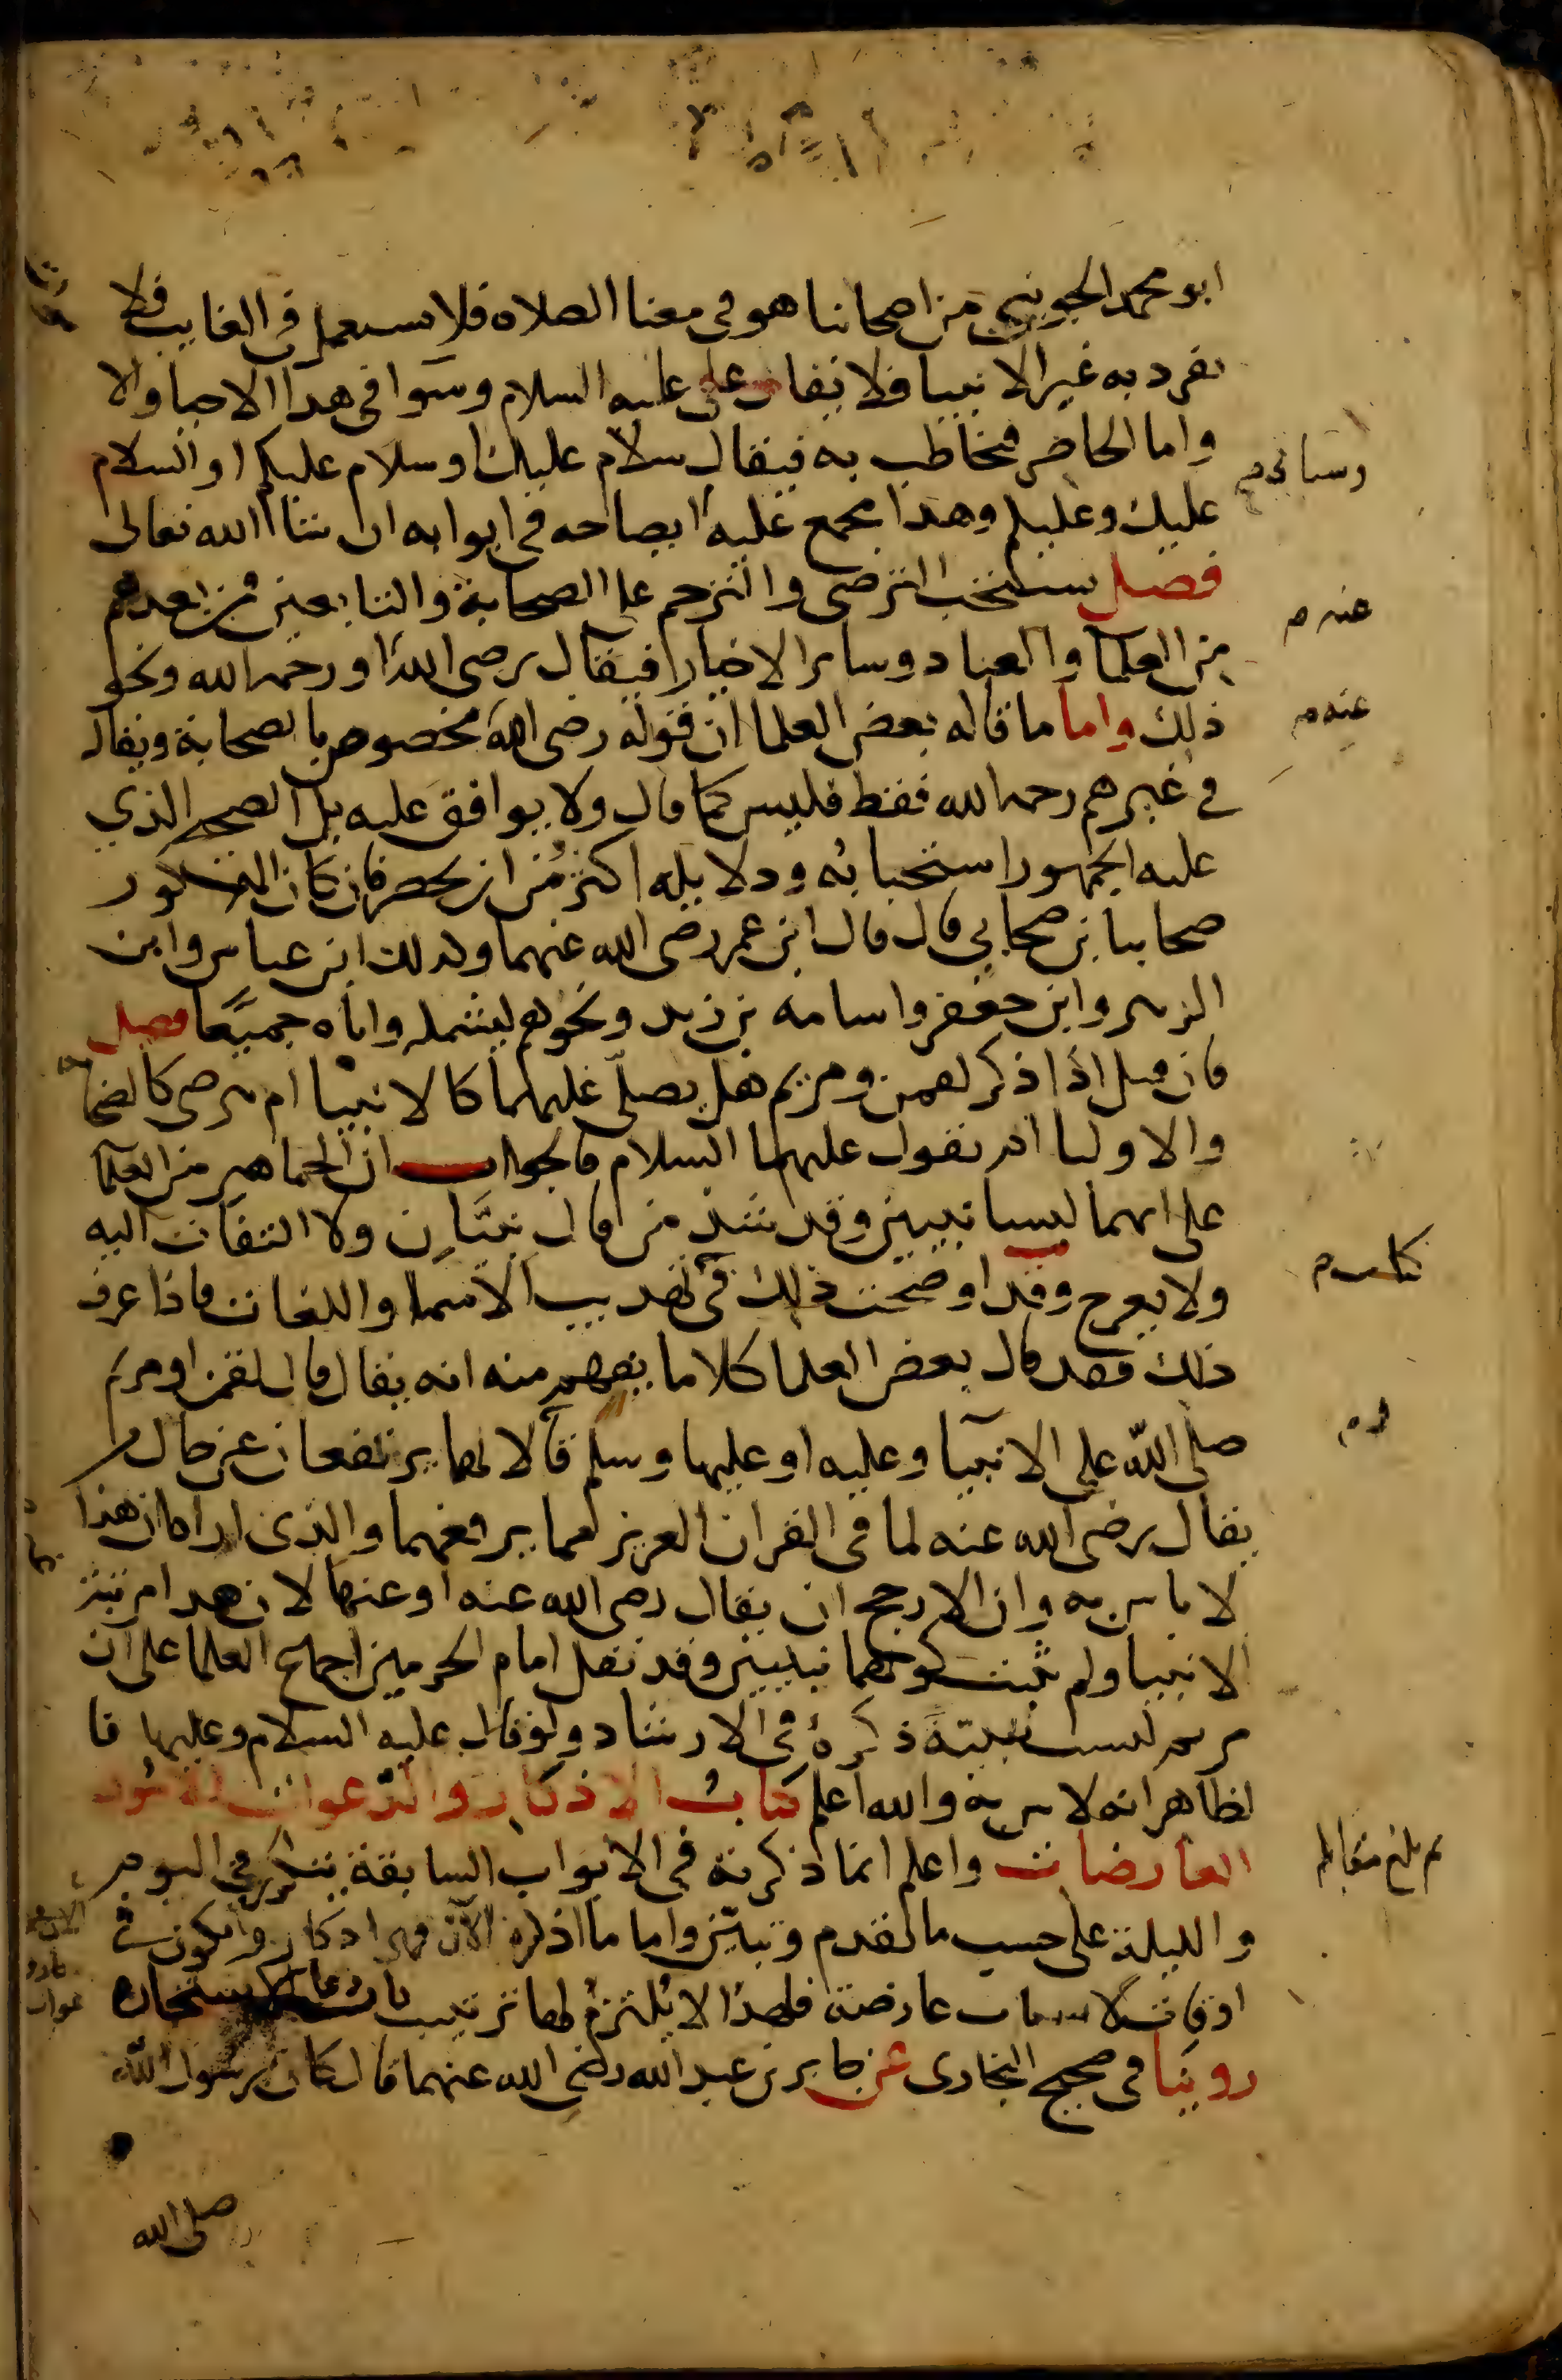 ابو محمد الجويني من اصحابنا هو في معنا الصلاه فلا يستعمل في الغايب فلا
يفرد به غير الانبيا فلا يقال علي عليه السلام وسوا في هذا الاحيا والا
واما الحاضر فيخاطب به فيقال سلام عليك او سلام عليكم او السلام
وسياتي م
عليك وعليكم وهذا مجمع عليه ايضاحه في ابوابه ان شاا الله تعالى
فصل يستحب الترضي والترحم على الصحابة والتابعين فمن بعدهم
عنه م
من العلما والعباد وساير الاخيار فيقال رضي الله او رحمه الله ونحو
ذلك واما ما قاله بعض العلما ان قوله رضي الله مخصوص بالصحابة ويقال
عنه م
في غيرهم رحمه الله فقط فليس كما قال ولا يوافق عليه بل الصحيح الذي
عليه الجمهور استحبابه ودلايله اكثر من ان تحصر فان كان المذكور
صحابيا بن صحابي قال قال ابن عمر رضي الله عنهما وكذلك ابن عباس وابن
الزبير وابن جعفر واسامه بن زيد ونحوهم ليشمله واباه جميعا فصل
فان قيل اذا ذكر لقمن ومريم هل يصلى عليهما كالانبيا ام يرضى كالصحابة
والاوليا ام يقول عليهما السلام فالجواب ان الجماهير من العلما
على انهما ليسا نبيين وقد شذ من قال نبيان ولا التفات اليه
ولا يعرج وقد اوضحت ذلك في تهذيب الاسما واللغات فاذا عرف
كتاب م
ذلك فقد قال بعض العلما كلاما يفهم منه انه يقال قال لقمن او مريم
صلى الله على الانبيا وعليه او عليها وسلم قال لانهما يرتفعان عن حال من
يقال رضي الله عنه لما في القران العزيز مما يرفعهما والذي اراه ان هذا
لا باس به وان الارجح ان يقال رضي الله عنه او عنها لان هذا مرتبة
الانبيا ولم يثبت كونهما نبيين وقد نقل امام الحرمين اجماع العلما على ان
مريم ليست نبية ذكره في الارشاد ولو قال عليه السلام وعليها فا
لظاهر انه لا باس به والله اعلم كتاب الاذكار والدعوات للامور
العارضات واعلم انما ذكرته في الابواب السابقة يتكرر في اليوم
ثم بلغ مقابله
والليلة على حسب ما تقدم وتبين واما ما اذكره الآن فهي اذكار وتكون في
اوقات لاسباب عارضة فلهذا لا يلتزم لها ترتيب باب دعا الاستخاره
روينا في صحيح البخارى عن جابر بن عبد الله رضي الله عنهما قال كان رسول الله
صلى الله